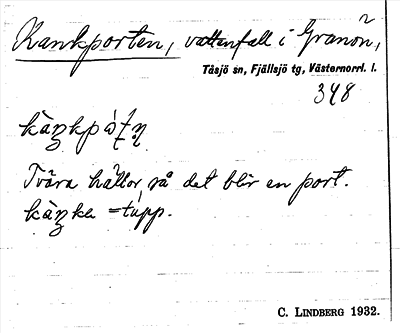 Kankporten, vattenfall i Granön,
Tåsjö sn, Fjällsjö tg, Västernorrl. l.
348
Tvära hällor, så det blir en port.
= tupp.
C. LINDBERG 1932.